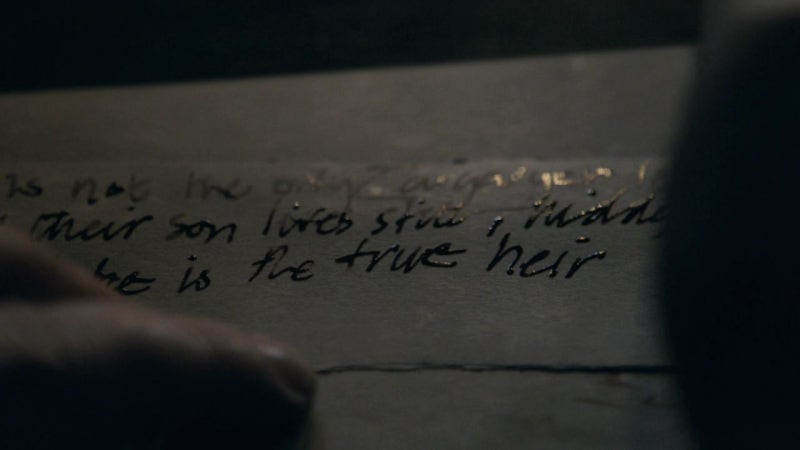 is not the only
their son lives still, hidde
he is the true heir